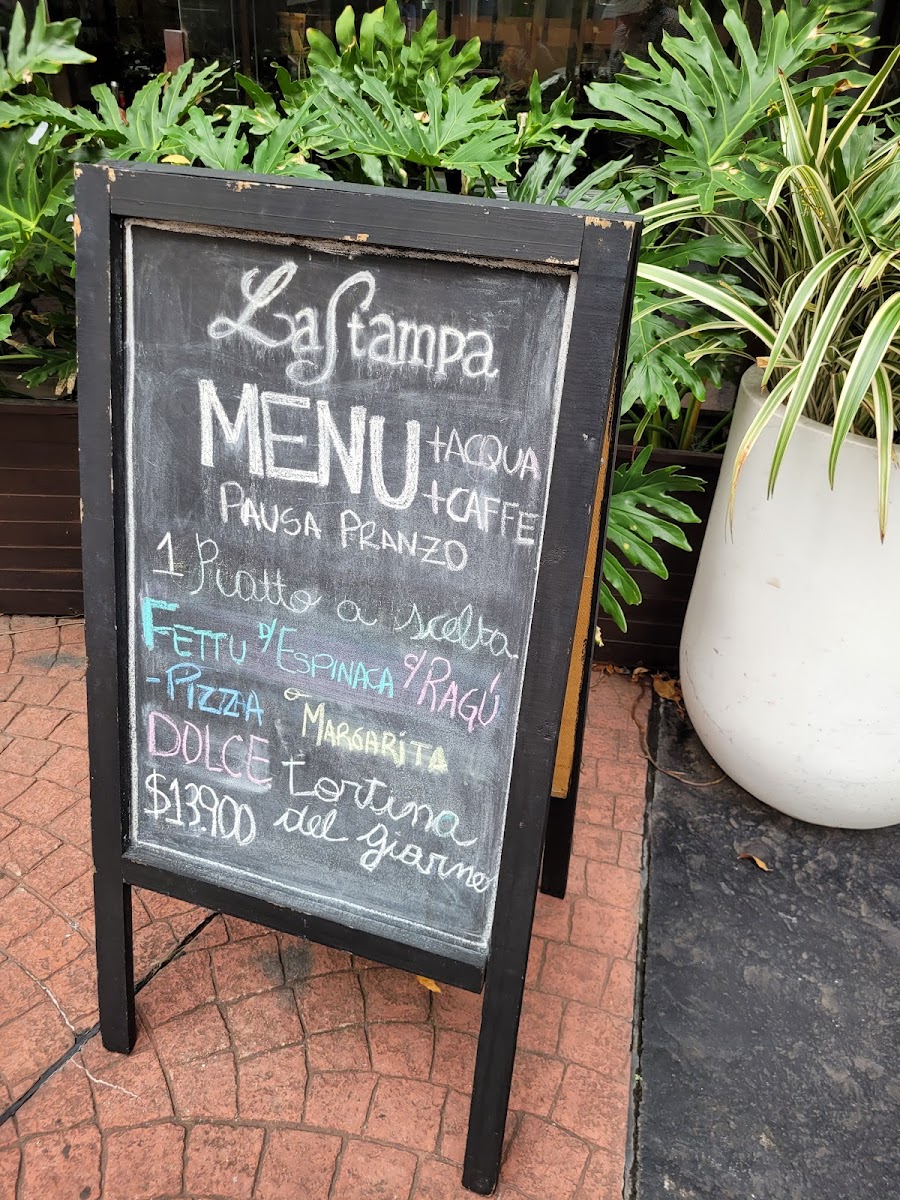 La Stampa
MENU +ACQUA
+CAFFE
PAUSA PRANZO
1 Piatto a scelta
FETTU D/ESPINACA C/RAGÚ
- PIZZA o MARGARITA
DOLCE tortina
del giorno
$13.900